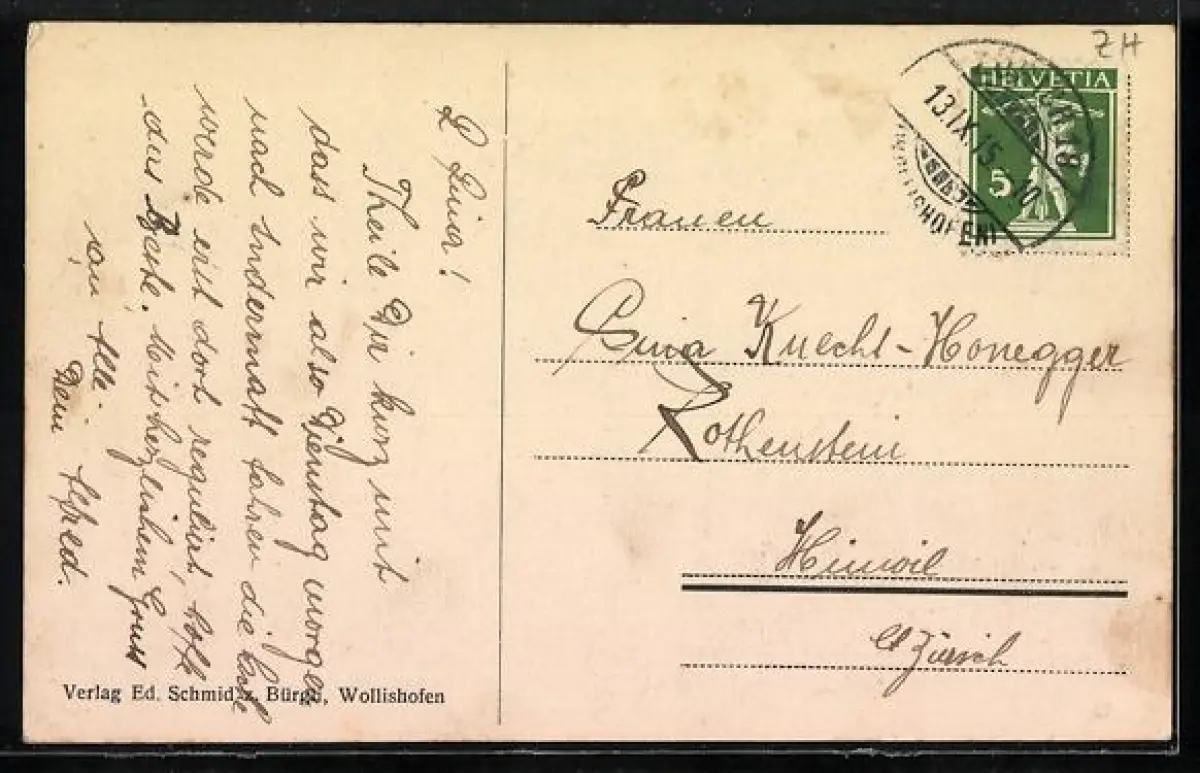 L Lina!
Theile Dir kurz mit
dass wir also Dienstag morgen
nach Andermatt fahren die
werde erst dort regulirt, hoffe
das Beste. Mit herzlichem Gruss
an Alle.
Dein Alfred.
Verlag Ed. Schmid z. Bürgli, Wollishofen
ZH
HELVETIA
5
13.IX.15.
(WOLLISHOFEN)
Frauen
Lina Knecht-Honegger
Rothenstein
Hinwil
Ct Zürich